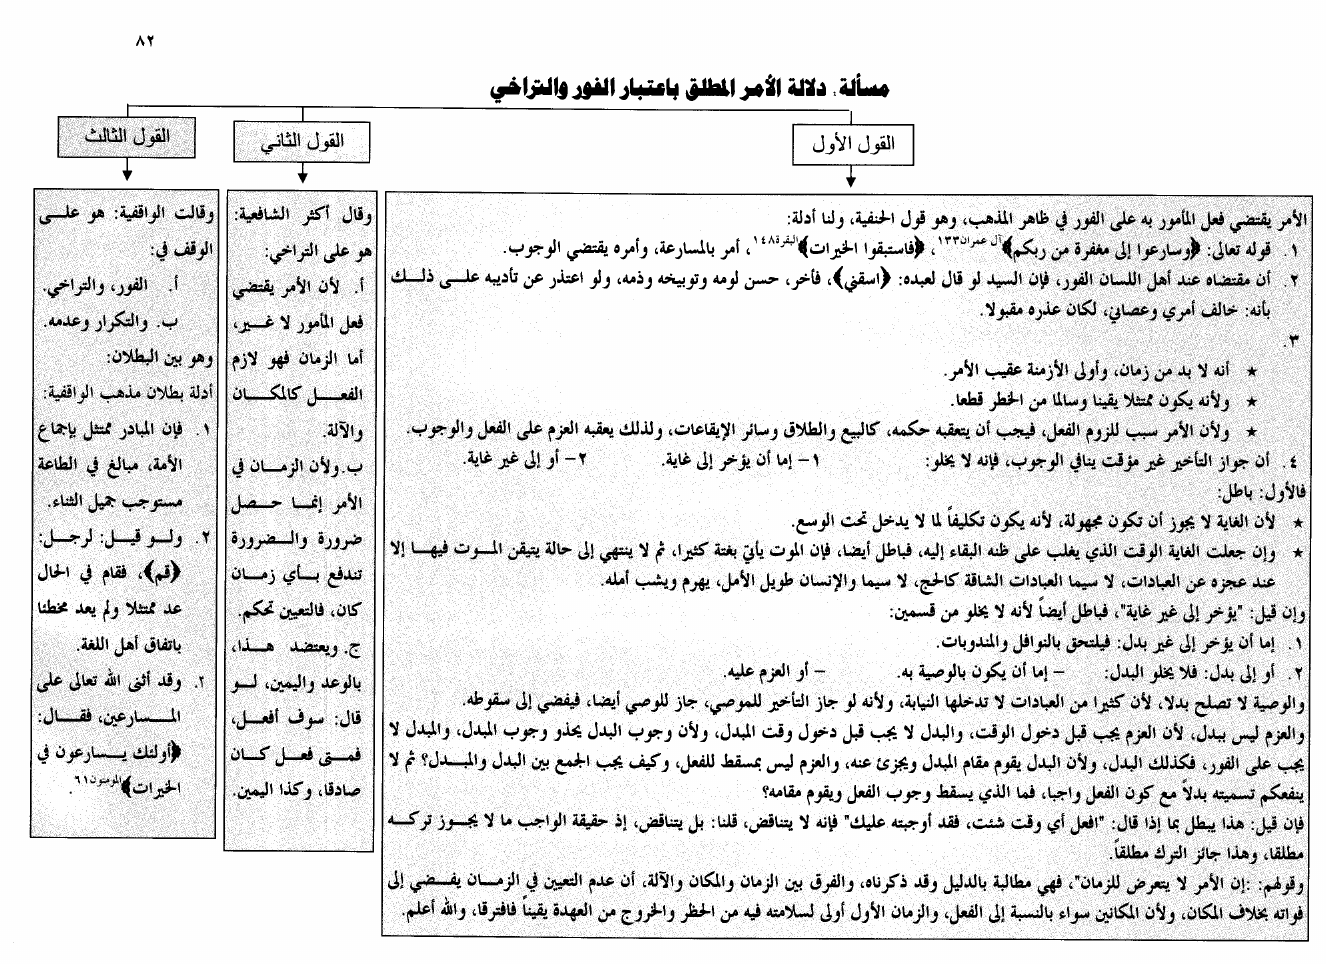 ٨٢
مسألة: دلالة الأمر المطلق باعتبار الفور والتراخي
القول الأول
الأمر يقتضي فعل المأمور به على الفور في ظاهر المذهب، وهو قول الحنفية، ولنا أدلة:
١. قوله تعالى: ﴿وسارعوا إلى مغفرة من ربكم﴾ آل عمران١٣٣، ﴿فاستبقوا الخيرات﴾ البقرة١٤٨، أمر بالمسارعة، وأمره يقتضي الوجوب.
٢. أن مقتضاه عند أهل اللسان الفور، فإن السيد لو قال لعبده: ﴿اسقني﴾، فأخر، حسن لومه وتوبيخه وذمه، ولو اعتذر عن تأديبه على ذلك
بأنه: خالف أمري وعصاني، لكان عذره مقبولا.
٣.
★ أنه لا بد من زمان، وأولى الأزمنة عقيب الأمر.
★ ولأنه يكون ممتثلا يقينا وسالما من الخطر قطعا.
★ ولأن الأمر سبب للزوم الفعل، فيجب أن يتعقبه حكمه، كالبيع والطلاق وسائر الإيقاعات، ولذلك يعقبه العزم على الفعل والوجوب.
٤. أن جواز التأخير غير مؤقت ينافي الوجوب، فإنه لا يخلو: ١- إما أن يؤخر إلى غاية. ٢- أو إلى غير غاية.
فالأول: باطل:
★ لأن الغاية لا يجوز أن تكون مجهولة، لأنه يكون تكليفاً لما لا يدخل تحت الوسع.
★ وإن جعلت الغاية الوقت الذي يغلب على ظنه البقاء إليه، فباطل أيضا، فإن الموت يأتي بغتة كثيرا، ثم لا ينتهي إلى حالة يتيقن الموت فيها إلا
عند عجزه عن العبادات، لا سيما العبادات الشاقة كالحج، لا سيما والإنسان طويل الأمل، يهرم ويشب أمله.
وإن قيل: "يؤخر إلى غير غاية"، فباطل أيضاً لأنه لا يخلو من قسمين:
١. إما أن يؤخر إلى غير بدل: فيلتحق بالنوافل والمندوبات.
٢. أو إلى بدل: فلا يخلو البدل: – إما أن يكون بالوصية به. – أو العزم عليه.
والوصية لا تصلح بدلا، لأن كثيرا من العبادات لا تدخلها النيابة، ولأنه لو جاز التأخير للموصي، جاز للوصي أيضا، فيفضي إلى سقوطه.
والعزم ليس ببدل، لأن العزم يجب قبل دخول الوقت، والبدل لا يجب قبل دخول وقت المبدل، ولأن وجوب البدل يحذو وجوب المبدل، والمبدل لا
يجب على الفور، فكذلك البدل، ولأن البدل يقوم مقام المبدل ويجزئ عنه، والعزم ليس بمسقط للفعل، وكيف يجب الجمع بين البدل والمبدل؟ ثم لا
ينفعكم تسميته بدلاً مع كون الفعل واجبا، فما الذي يسقط وجوب الفعل ويقوم مقامه؟
فإن قيل: هذا يبطل بما إذا قال: "افعل أي وقت شئت، فقد أوجبته عليك" فإنه لا يتناقض، قلنا: بل يتناقض، إذ حقيقة الواجب ما لا يجوز تركه
مطلقا، وهذا جائز الترك مطلقاً.
وقولهم: :إن الأمر لا يتعرض للزمان"، فهي مطالبة بالدليل وقد ذكرناه، والفرق بين الزمان والمكان والآلة، أن عدم التعيين في الزمان يفضي إلى
فواته بخلاف المكان، ولأن المكانين سواء بالنسبة إلى الفعل، والزمان الأول أولى لسلامته فيه من الحظر والخروج من العهدة يقيناً فافترقا، والله أعلم.
القول الثاني
وقال أكثر الشافعية:
هو على التراخي:
أ. لأن الأمر يقتضي
فعل المأمور لا غير،
أما الزمان فهو لازم
الفعل كالمكان
والآلة.
ب.ولأن الزمان في
الأمر إنما حصل
ضرورة والضرورة
تندفع بأي زمان
كان، فالتعيين تحكم.
ج. ويعتضد هذا،
بالوعد واليمين، لو
قال: سوف أفعل،
فمتى فعل كان
صادقا، وكذا اليمين.
القول الثالث
وقالت الواقفية: هو على
الوقف في:
أ. الفور، والتراخي.
ب. والتكرار وعدمه.
وهو بين البطلان:
أدلة بطلان مذهب الواقفية:
١. فإن المبادر ممتثل بإجماع
الأمة، مبالغ في الطاعة
مستوجب جميل الثناء.
٢. ولو قيل: لرجل:
﴿قم﴾، فقام في الحال
عد ممتثلا ولم يعد مخطئا
باتفاق أهل اللغة.
٢. وقد أثنى الله تعالى على
المسارعين، فقال:
﴿أولئك يسارعون في
الخيرات﴾ المومنون٦١.